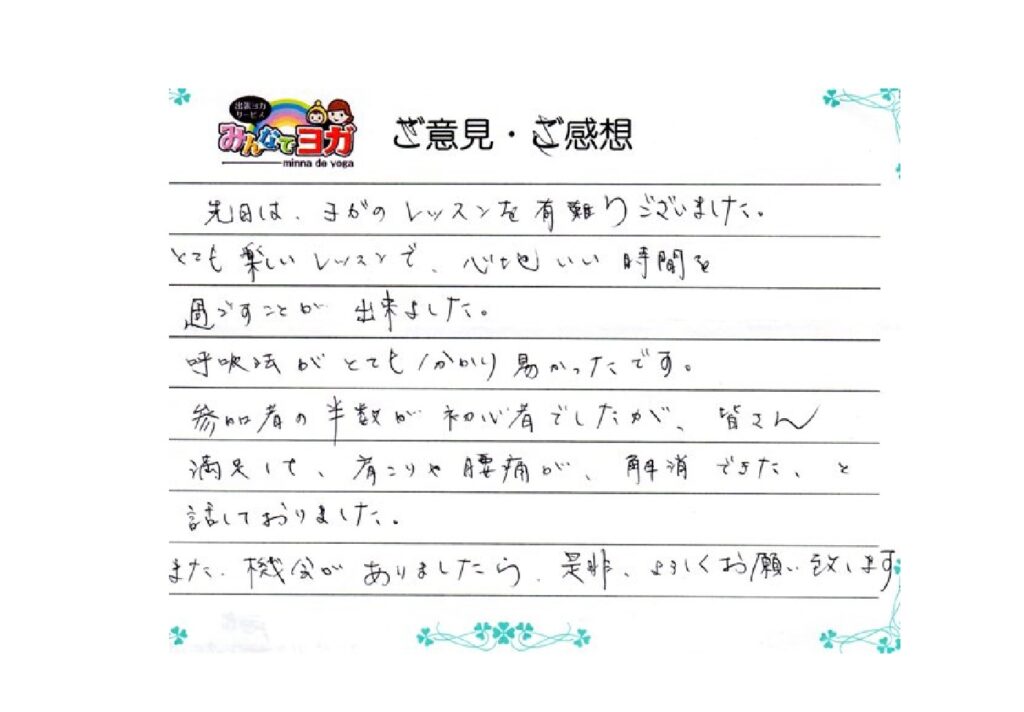 出張ヨガ
サービス
みんなでヨガ
minna de yoga
ご意見・ご感想
先日は、ヨガのレッスンを有難うございました。
とても楽しいレッスンで、心地いい時間を
過ごすことが出来ました。
呼吸法がとても分かり易かったです。
参加者の半数が初心者でしたが、皆さん
満足して、肩こりや腰痛が、解消できた、と
話しておりました。
また、機会がありましたら、是非、よろしくお願い致します